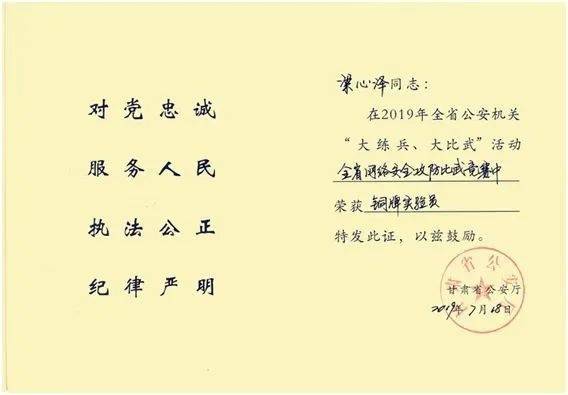 对党忠诚
服务人民
执法公正
纪律严明
梁心泽同志：
在2019年全省公安机关
“大练兵、大比武”活动
全省网络安全攻防比武竞赛中
荣获 铜牌实验员
特发此证，以兹鼓励。
甘肃省公安厅
2019年7月18日
甘肃省公安厅